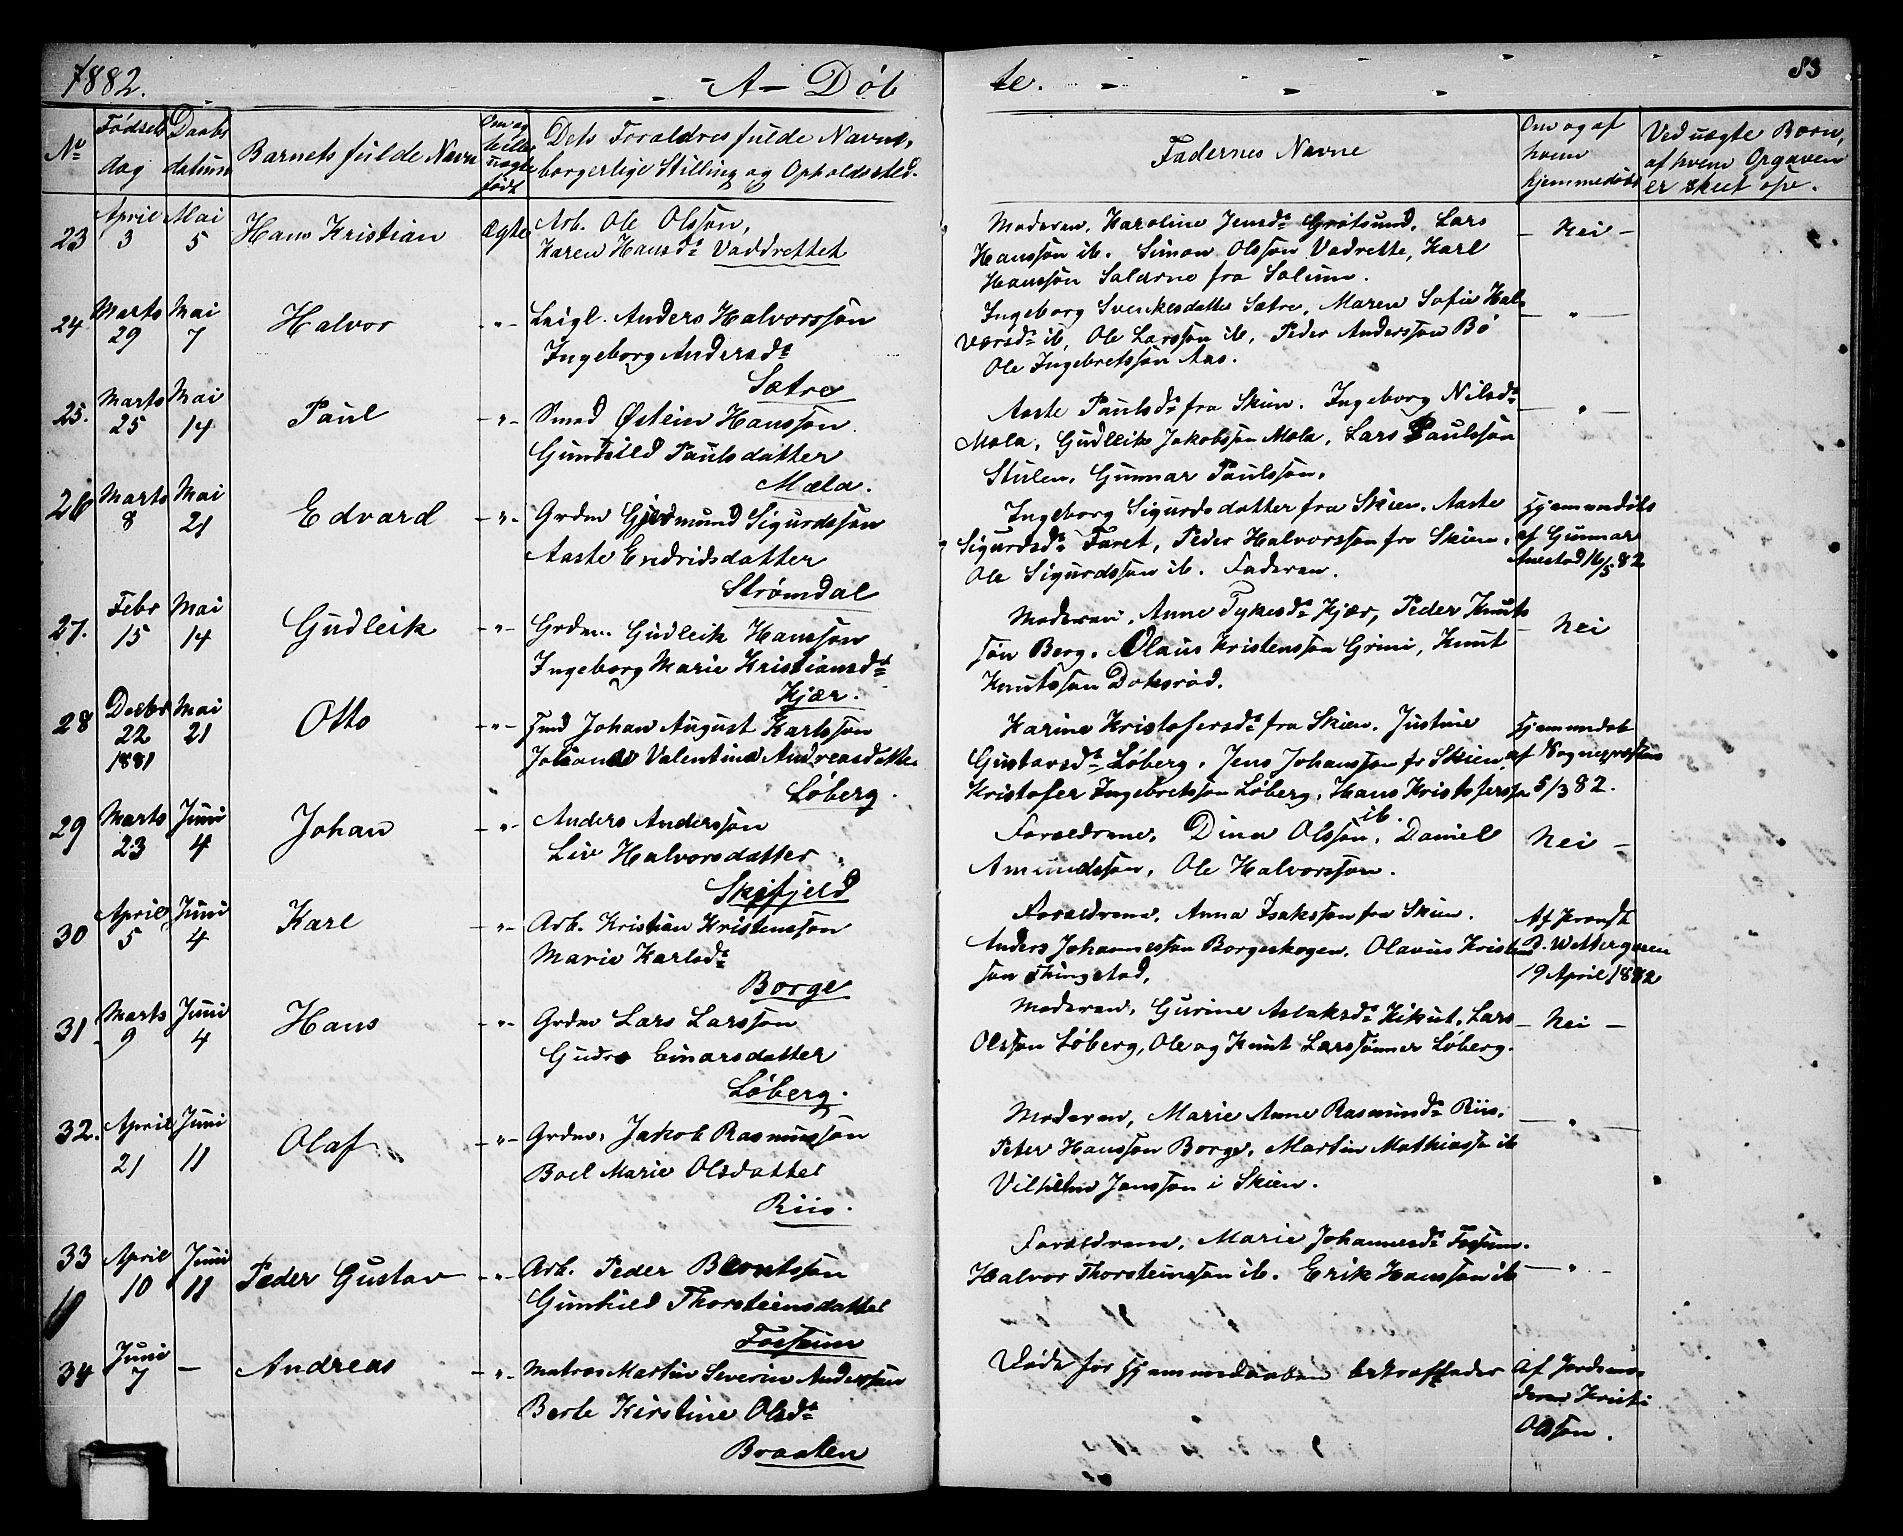 1882. A – Døbte. 83
No Fødsels dag Daabs datum Barnets fulde Navn Om ægte eller uægte født Dets Forældres fulde Navne, borgerlige Stilling og Opholdssted. Faddernes Navne Om og af hvem hjemmedøbt Ved uægte Børn, af hvem Opgaven er skeet osv.
23 April 3 Mai 5 Hans Kristian Ægte Arb. Ole Olsson,
Karen Hansdr Vaddrettet
Moderen, Karoline Jensdr Grøtsund, Lars
Hansson ib. Simon Olsson Vadrette, Karl
Hansson Salerne fra Solum.
– Nei –
24 Marts 29 Mai 7 Halvor –"– Leigl. Anders Halvorsson
Ingeborg Andersdr
Sætre
Ingeborg Svenkesdatter Sætre, Maren Sofie Hal-
vorsdr ib, Ole Larsson ib, Peder Andersson Bø
Ole Ingebretsson Aas.
– " –
25. Marts 25 Mai 14 Paul –"– Smed Østein Hansson
Gundhild Paulsdatter
Mæla.
Aaste Paulsdr fra Skien. Ingeborg Nilsdr
Mæla, Gudleik Jakobsson Mæla, Lars Paulsson
Stulen, Gunnar Paulsson.
– " –
26 Marts 8 Mai 21 Edvard –"– Grdm Gjermund Sigurdsson
Aaste Endridsdatter
Strømdal
Ingeborg Sigurdsdatter fra Skien, Aaste
Sigurdsdr Faret, Peder Halvorsson fra Skien,
Ole Sigurdsson ib. Faderen.
Hjemmedøbt
af Gunnar
16/3 82
27. Febr 15 Mai 14 Gudleik –"– Grdm. Gudleik Hansson
Ingeborg Marie Kristiansdr
Kjær.
Moderen, Anne Tykesdr Kjær, Peder Knuts
søn Berg. Olaus Kristensson Grini, Knut
Knutsson Doksrød.
Nei
28 Decbr 22 1881 Mai 21 Otto –"– Johan August Karlsson
Johanne Valentine Andreasdatter
Løberg.
Karine Kristofersdr fra Skien. Justine
Gustavsdr Løberg. Jens Johansson fr Skien,
Kristofer Ingebretsson Løberg, Hans Kristofersson ib.
Hjemmedøbt
af Sognepræsten
5/3 82.
29 Marts 23 Juni 4 Johan –"– Anders Andersson
Live Halvorsdatter
Skifjeld
Forældrene, Dina Olsson, Daniel
Amundsson, Ole Halvorsson.
Nei –
30 April 5 Juni 4 Karl –"– Arb. Kristian Kristensson
Marie Karlsdr
Borge
Forældrene, Anna Isaksson fra Skien.
Anders Johannesson Borgeskogen. Olavus Kristen
søn Thingstad,
Af
D. Wettergreen
19 April 1882
31 Marts 9 Juni 4 Hans –"– Grdm Lars Larsson
Gudro Einarsdatter
Løberg.
Moderen, Gurine Aslaksdr Kikut, Lars
Olsson Løberg, Ole og Knut Larssønner Løberg.
– Nei –
32. April 21 Juni 11 Olaf –"– Grdm. Jakob Rasmusson
Boel Marie Olsdatter
Riis.
Moderen, Marie Anne Rasmusdr Riis.
Peter Hansson Borge, Martin Mathiasson ib
Vilhelm Jansson i Skien.
– " –
33 April 10 Juni 11 Peder Gustav –"– Arb. Peder Berntsson
Gunhild Thorsteinsdatter
Fossum
Forældrene, Marie Johannesdr Fossum.
Halvor Thorsteinsson ib. Erik Hansson ib
– " –
34 Juni 7 – Andreas –"– Matros Martin Severin Andersson
Berte Kirstine Olsdr
Braaten
Døde før Hjemmedaaben bekræftedes
Af Jordmo-
deren
Olsson.